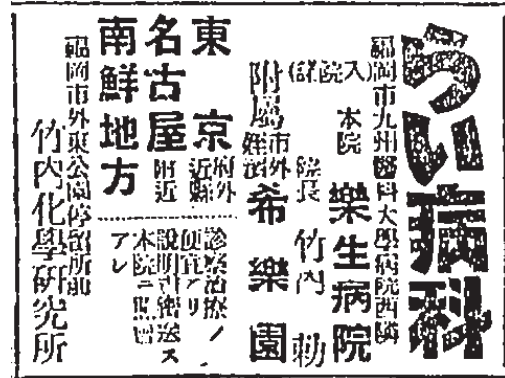 らい病科
福岡市九州醫科大學病院西隣
本院 樂生病院
(入院諾)
院長 竹内 勅
附属 市外姪濱 希樂園
東京 府外近縣
名古屋 附近
南鮮地方
診察治療ノ
便宜アリ
説明書密送ス
本院ニ照會
アレ
福岡市外東公園停留所前
竹内化學研究所